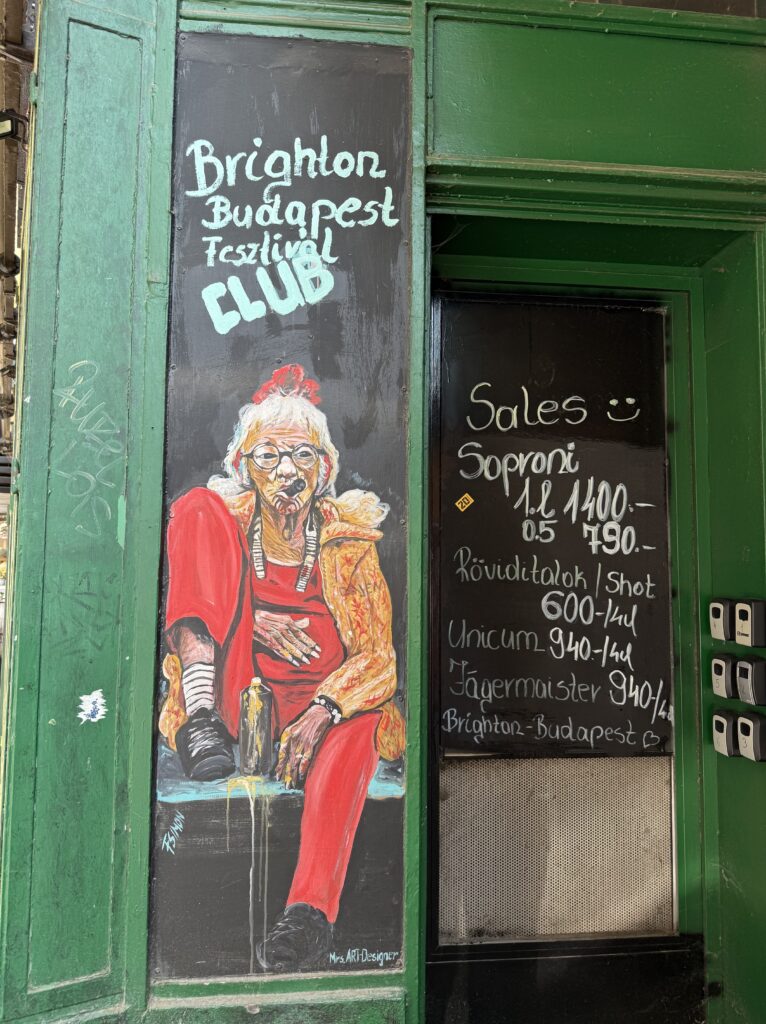 Brighton
Budapest
Fesztivál
CLUB
FSIMON
Mrs. ART-Designer
Sales
Soproni
1.l 1400.-
0.5 790.-
Röviditalok / Shot
600-/4cl
Unicum 940.-/4cl
Jägermaister 940-/4cl
Brighton-Budapest